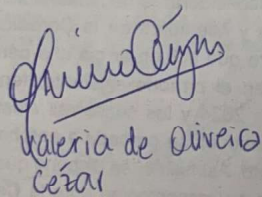 Valeria de Oliveira
Cézar